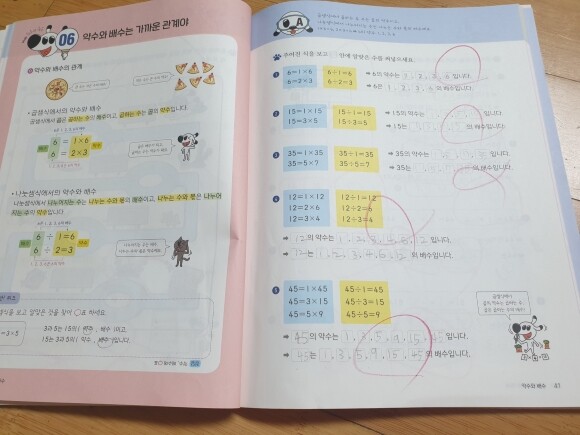 06 약수와 배수는 가까운 관계야
약수와 배수의 관계
• 곱셈식에서의 약수와 배수
곱셈식에서 곱은 곱하는 수의 배수이고, 곱하는 수는 곱의 약수입니다.
배수 6 = 1×6 약수
6 = 2×3
• 나눗셈식에서의 약수와 배수
나눗셈식에서 나누어지는 수는 나누는 수와 몫의 배수이고, 나누는 수와 몫은 나누어
지는 수의 약수입니다.
배수 6 ÷ 1=6 약수
6 ÷ 2=3
식을 보고 알맞은 것을 찾아 ○표 하세요.
=3×5
3과 5는 15의 ( 약수, 배수 )이고,
15는 3과 5의 ( 약수, 배수 )입니다.
A
주어진 식을 보고 안에 알맞은 수를 써넣으세요.
1
6=1×6 6÷1=6
6=2×3 6÷2=3
➡ 6의 약수는 1, 2, 3, 6 입니다.
➡ 6은 1, 2, 3, 6 의 배수입니다.
2
15=1×15 15÷1=15
15=3×5 15÷3=5
➡ 15의 약수는 입니다.
➡ 15는 의 배수입니다.
3
35=1×35 35÷1=35
35=5×7 35÷5=7
➡ 35의 약수는 입니다.
➡ 35는 의 배수입니다.
4
12=1×12 12÷1=12
12=2×6 12÷2=6
12=3×4 12÷3=4
➡ 12의 약수는 1, 2, 3, 4, 6, 12 입니다.
➡ 12는 1, 2, 3, 4, 6, 12 의 배수입니다.
5
45=1×45 45÷1=45
45=3×15 45÷3=15
45=5×9 45÷5=9
➡ 45의 약수는 1, 3, 5, 9, 15, 45 입니다.
➡ 45는 1, 3, 5, 9, 15, 45 의 배수입니다.
약수와 배수